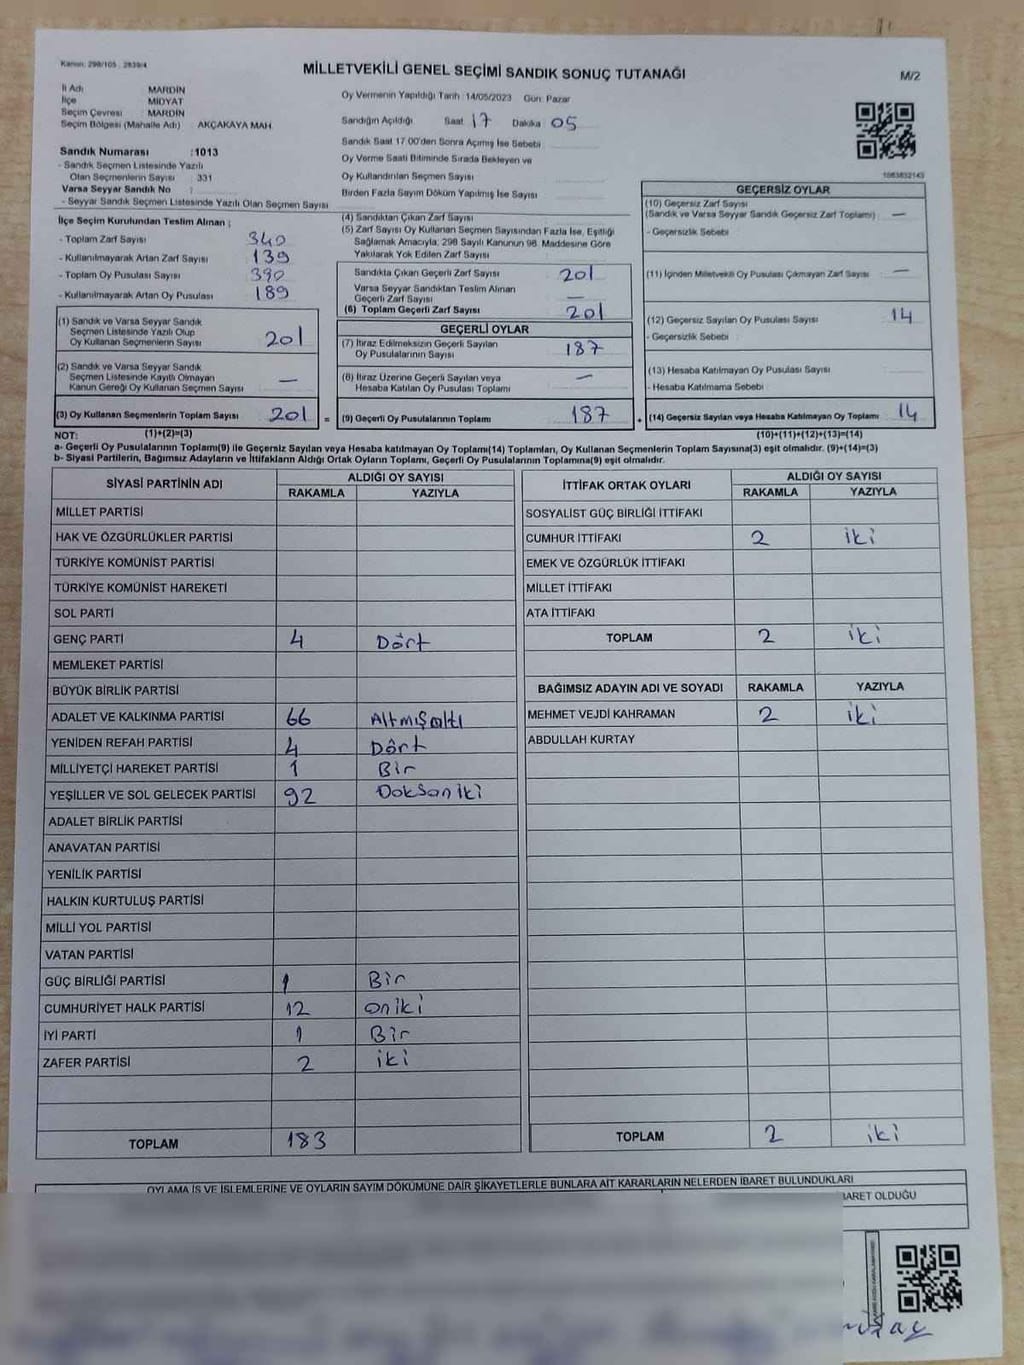 Kanun: 298/105 , 2839/4
MİLLETVEKİLİ GENEL SEÇİMİ SANDIK SONUÇ TUTANAĞI
M/2
İl Adı : MARDİN
İlçe : MİDYAT
Seçim Çevresi : MARDİN
Seçim Bölgesi (Mahalle Adı) : AKÇAKAYA MAH.
Oy Vermenin Yapıldığı Tarih :14/05/2023 Gün: Pazar
Sandığın Açıldığı Saat 17 Dakika 05
Sandık Saat 17.00'den Sonra Açımış İse Sebebi
Oy Verme Saati Bitiminde Sırada Bekleyen ve
Oy Kullandırılan Seçmen Sayısı
Birden Fazla Sayım Döküm Yapılmış İse Sayısı
1083832143
Sandık Numarası :1013
- Sandık Seçmen Listesinde Yazılı
Olan Seçmenlerin Sayısı : 331
Varsa Seyyar Sandık No :
- Seyyar Sandık Seçmen Listesinde Yazılı Olan Seçmen Sayısı
İlçe Seçim Kurulundan Teslim Alınan ;
- Toplam Zarf Sayısı 340
- Kullanılmayarak Artan Zarf Sayısı 139
- Toplam Oy Pusulası Sayısı 390
- Kullanılmayarak Artan Oy Pusulası 189
(1) Sandık ve Varsa Seyyar Sandık
Seçmen Listesinde Yazılı Olup
Oy Kullanan Seçmenlerin Sayısı 201
(2) Sandık ve Varsa Seyyar Sandık
Seçmen Listesinde Kayıtlı Olmayan
Kanun Gereği Oy Kullanan Seçmen Sayısı —
(3) Oy Kullanan Seçmenlerin Toplam Sayısı 201 =
(4) Sandıktan Çıkan Zarf Sayısı
(5) Zarf Sayısı Oy Kullanan Seçmen Sayısından Fazla İse, Eşitliği
Sağlamak Amacıyla, 298 Sayılı Kanunun 98. Maddesine Göre
Yakılarak Yok Edilen Zarf Sayısı
Sandıkta Çıkan Geçerli Zarf Sayısı 201
Varsa Seyyar Sandıktan Teslim Alınan
Geçerli Zarf Sayısı —
(6) Toplam Geçerli Zarf Sayısı 201
GEÇERLİ OYLAR
(7) İtiraz Edilmeksizin Geçerli Sayılan
Oy Pusulalarının Sayısı 187
(8) İtiraz Üzerine Geçerli Sayılan veya
Hesaba Katılan Oy Pusulası Toplamı —
(9) Geçerli Oy Pusulalarının Toplamı 187 +
GEÇERSİZ OYLAR
(10) Geçersiz Zarf Sayısı
(Sandık ve Varsa Seyyar Sandık Geçersiz Zarf Toplamı) —
- Geçersizlik Sebebi
(11) İçinden Milletvekili Oy Pusulası Çıkmayan Zarf Sayısı —
(12) Geçersiz Sayılan Oy Pusulası Sayısı 14
- Geçersizlik Sebebi
(13) Hesaba Katılmayan Oy Pusulası Sayısı
- Hesaba Katılmama Sebebi
(14) Geçersiz Sayılan veya Hesaba Katılmayan Oy Toplamı 14
NOT: (1)+(2)=(3)
(10)+(11)+(12)+(13)=(14)
a- Geçerli Oy Pusulalarının Toplamı(9) ile Geçersiz Sayılan veya Hesaba katılmayan Oy Toplamı(14) Toplamları, Oy Kullanan Seçmenlerin Toplam Sayısına(3) eşit olmalıdır. (9)+(14)=(3)
b- Siyasi Partilerin, Bağımsız Adayların ve İttifakların Aldığı Ortak Oyların Toplamı, Geçerli Oy Pusulalarının Toplamına(9) eşit olmalıdır.
SİYASİ PARTİNİN ADI
ALDIĞI OY SAYISI
RAKAMLA YAZIYLA
MİLLET PARTİSİ
HAK VE ÖZGÜRLÜKLER PARTİSİ
TÜRKİYE KOMÜNİST PARTİSİ
TÜRKİYE KOMÜNİST HAREKETİ
SOL PARTİ
GENÇ PARTİ 4 Dört
MEMLEKET PARTİSİ
BÜYÜK BİRLİK PARTİSİ
ADALET VE KALKINMA PARTİSİ 66 Altmışaltı
YENİDEN REFAH PARTİSİ 4 Dört
MİLLİYETÇİ HAREKET PARTİSİ 1 Bir
YEŞİLLER VE SOL GELECEK PARTİSİ 92 Doksaniki
ADALET BİRLİK PARTİSİ
ANAVATAN PARTİSİ
YENİLİK PARTİSİ
HALKIN KURTULUŞ PARTİSİ
MİLLİ YOL PARTİSİ
VATAN PARTİSİ
GÜÇ BİRLİĞİ PARTİSİ 1 Bir
CUMHURİYET HALK PARTİSİ 12 oniki
İYİ PARTİ 1 Bir
ZAFER PARTİSİ 2 iki
TOPLAM 183
İTTİFAK ORTAK OYLARI
ALDIĞI OY SAYISI
RAKAMLA YAZIYLA
SOSYALİST GÜÇ BİRLİĞİ İTTİFAKI
CUMHUR İTTİFAKI 2 iki
EMEK VE ÖZGÜRLÜK İTTİFAKI
MİLLET İTTİFAKI
ATA İTTİFAKI
TOPLAM 2 iki
BAĞIMSIZ ADAYIN ADI VE SOYADI RAKAMLA YAZIYLA
MEHMET VEJDİ KAHRAMAN 2 iki
ABDULLAH KURTAY
TOPLAM 2 iki
OYLAMA İŞ VE İŞLEMLERİNE VE OYLARIN SAYIM DÖKÜMÜNE DAİR ŞİKAYETLERLE BUNLARA AİT KARARLARIN NELERDEN İBARET BULUNDUKLARI
BARET OLDUĞU